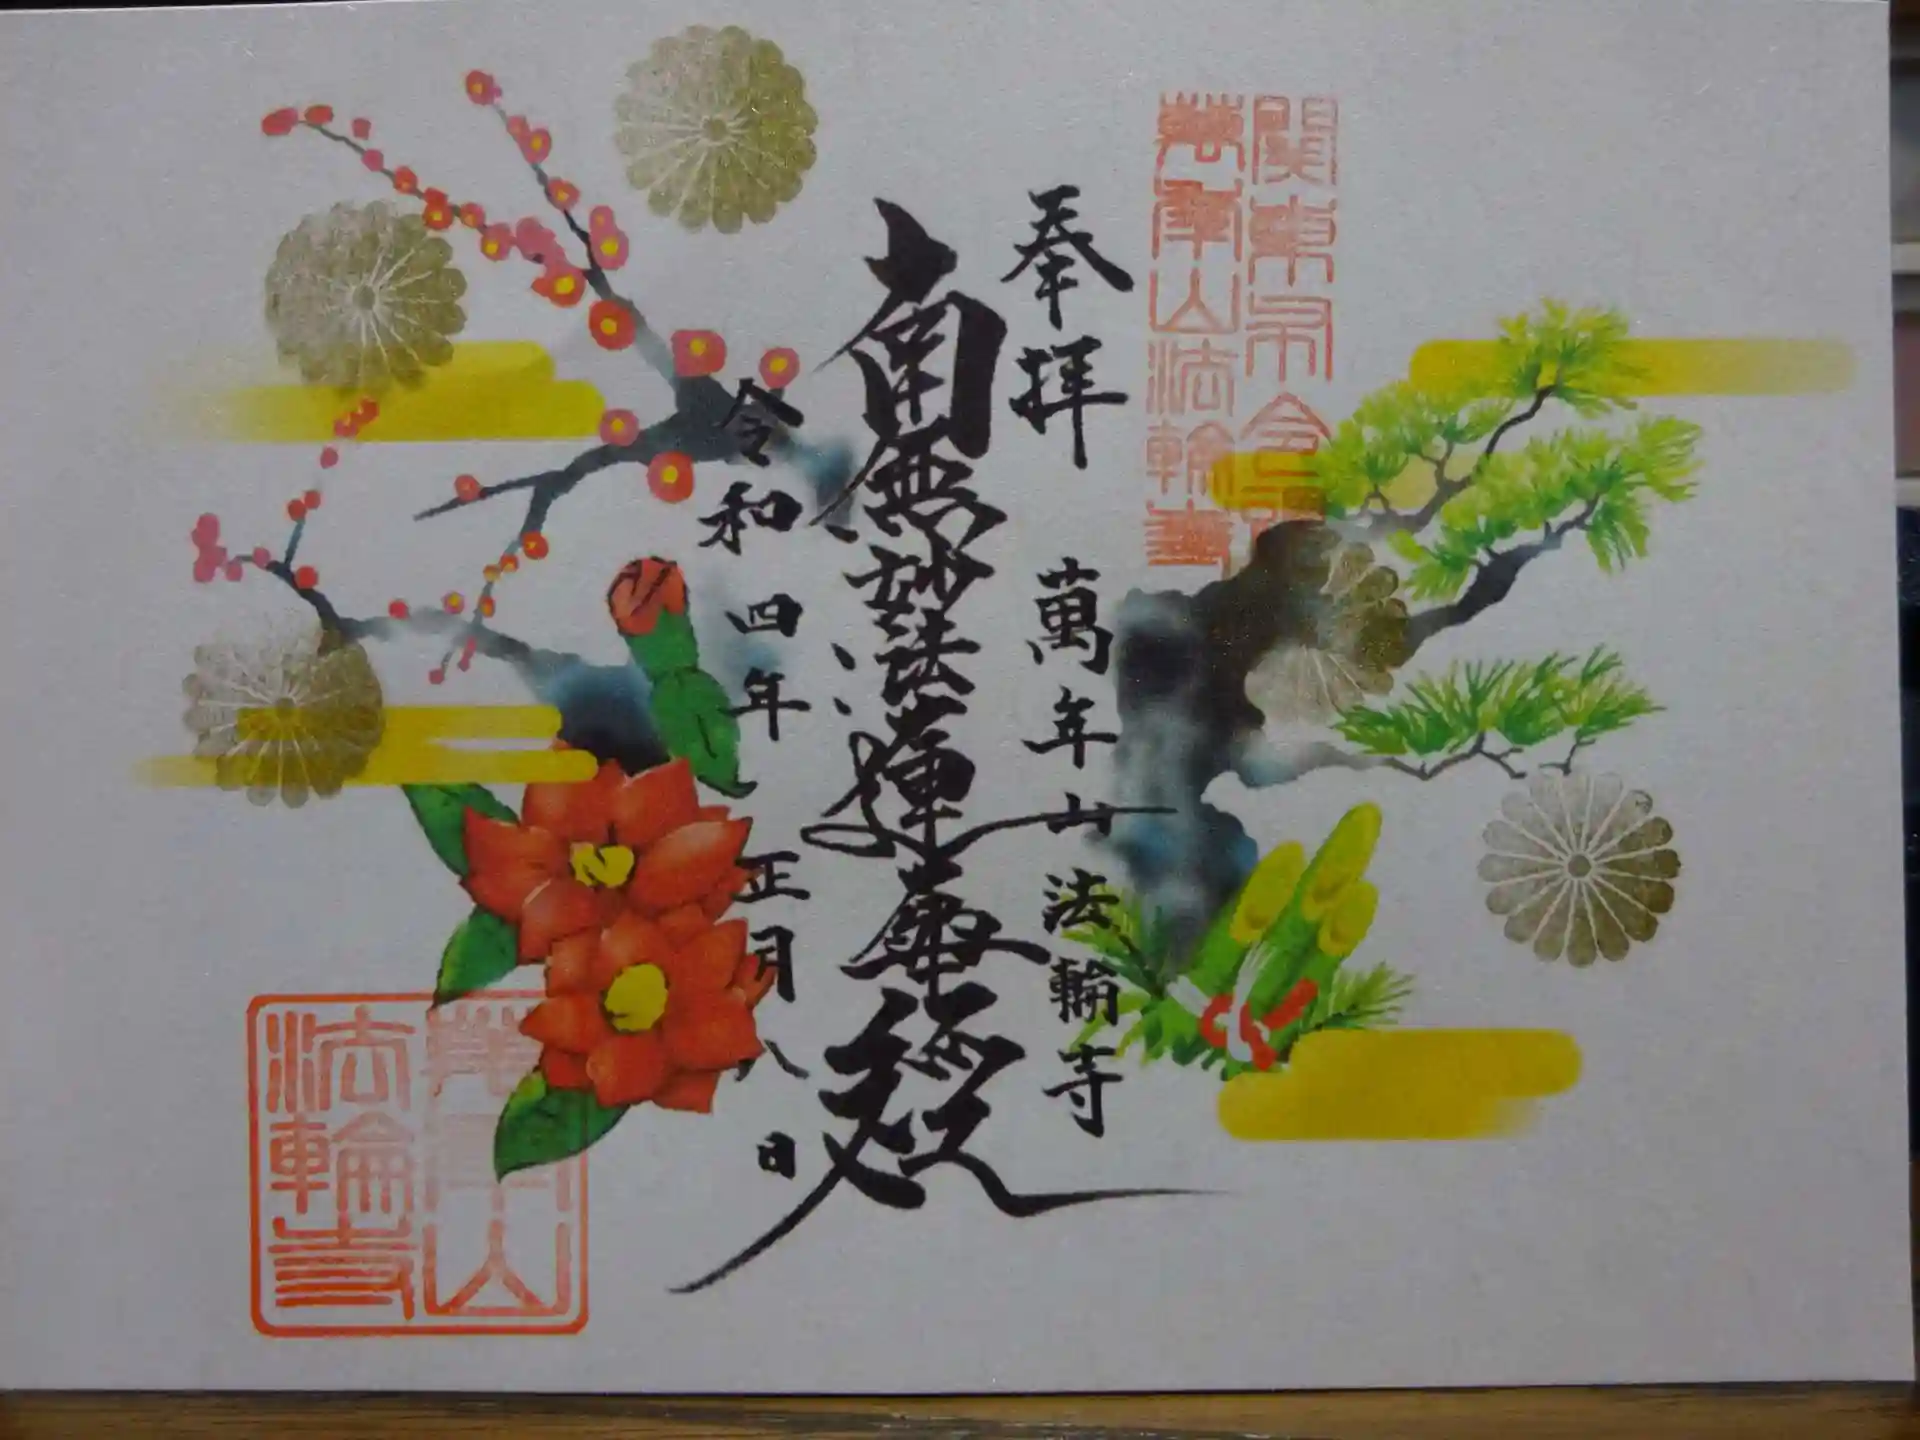 関東布令
萬年山法輪寺
奉拝 萬年山法輪寺
南無妙法蓮華経
令和四年 正月八日
萬年山
法輪寺